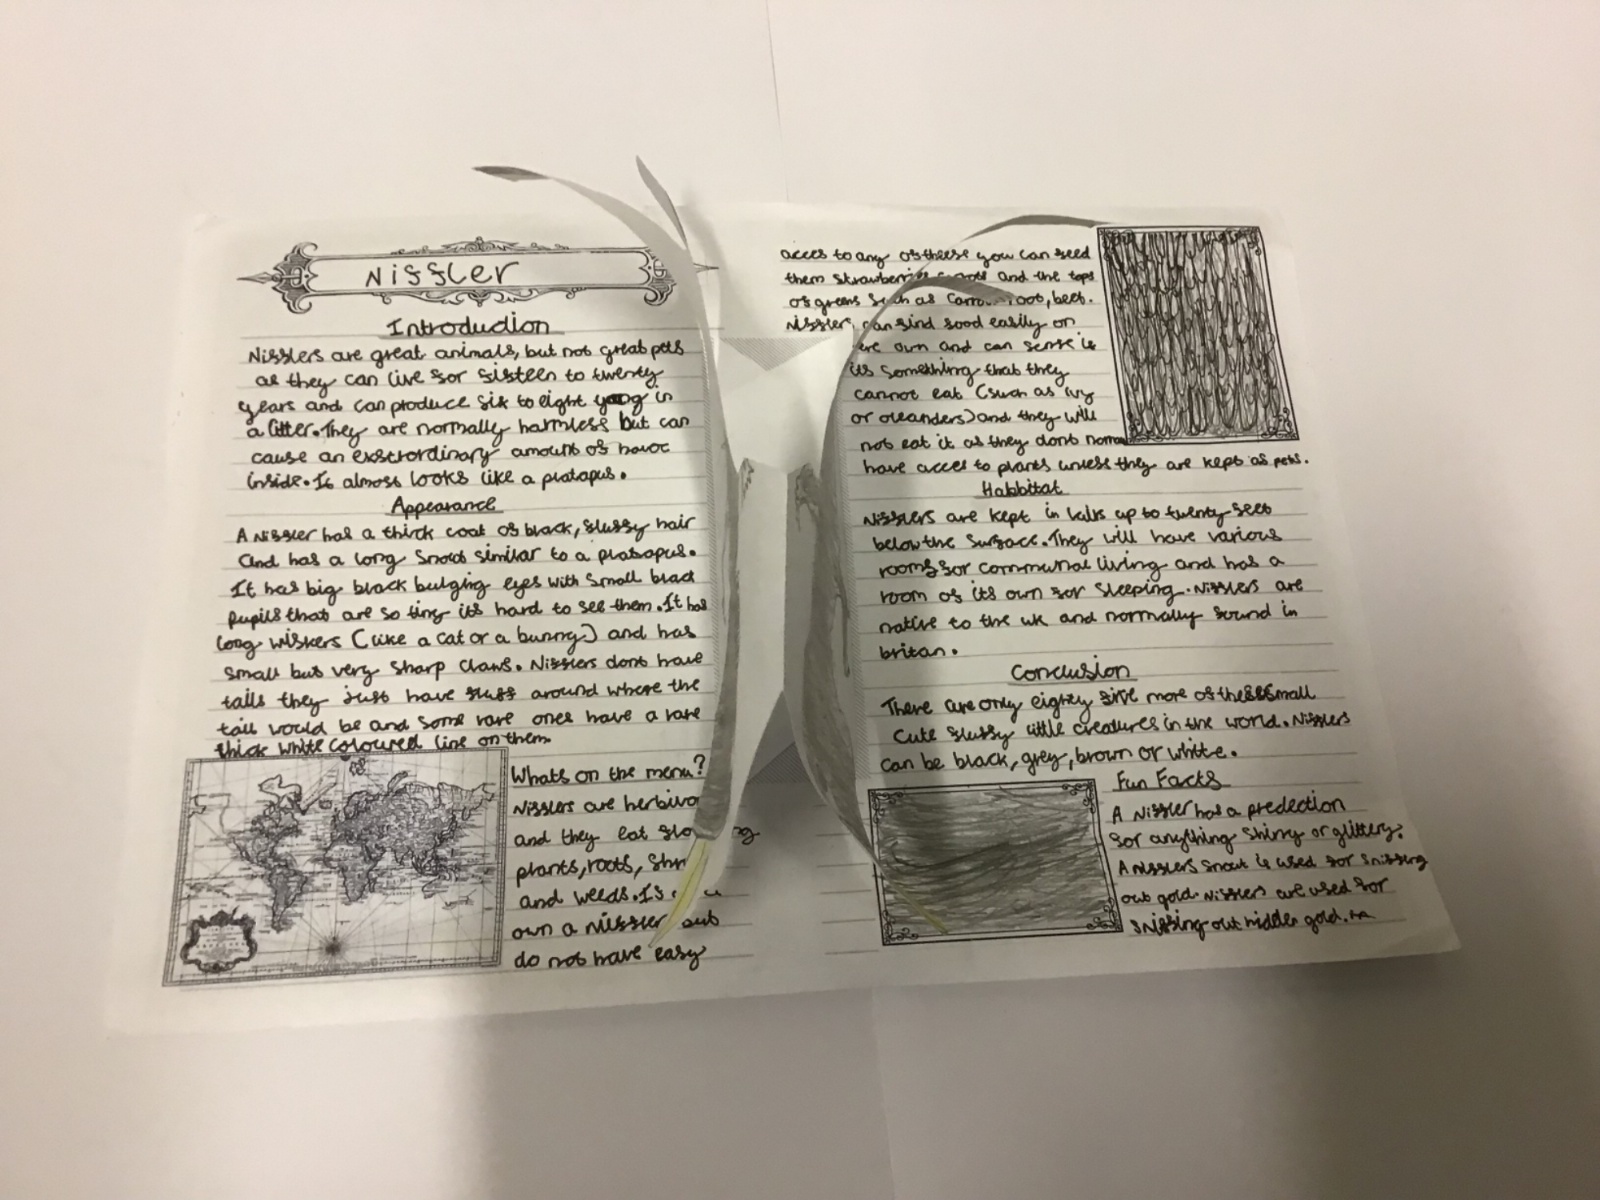 Niffler
Introduction
Nifflers are great animals, but not great pets
as they can live for fifteen to twenty
years and can produce six to eight yong in
a litter. They are normally harmless but can
cause an exstrordinary amount of havoc
inside. It almost looks like a platapus.
Appearance
A Niffler has a thick coat of black, fluffy hair
and has a long snout similar to a platapus.
It has big black bulging eyes with small black
pupils that are so tiny its hard to see them. It has
long wiskers (like a cat or a bunny) and has
small but very sharp claws. Nifflers dont have
tails they just have fluff around where the
tail would be and some rare ones have a rare
thick white coloured line on them.
Whats on the menu?
Nifflers are
and they eat
plants, roots,
and weeds. If
own a niffler but
do not have easy
acces to any of these you can feed
them and the tops
of greens such as root, beet.
Niffler can find food easily on
own and can sense if
its something that they
cannot eat (such as ivy
or oleanders) and they will
not eat it as they dont
have acces to plants unless they are kept as pets.
Habbitat
Nifflers are kept in up to twenty feet
below the surface. They will have various
rooms for communal living and has a
room of its own for sleeping. Nifflers are
native to the uk and normally found in
britan.
Conclusion
There are only eighty five more of these small
cute fluffy little creatures in the world. Nifflers
can be black, grey, brown or white.
Fun Facts
A Niffler has a predection
for anything shiny or glittery.
A nifflers snout is used for sniffing
out gold. Nifflers are used for
sniffing out hidden gold.